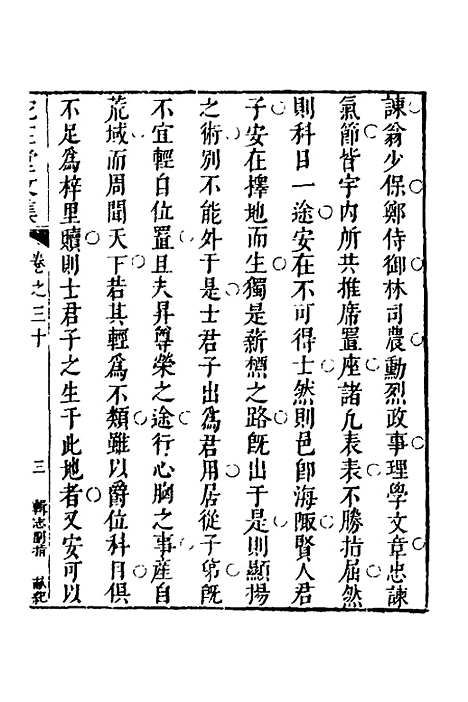 諫翁少保鄭侍御林司農勳烈政事理學文章忠諫
氣節皆宇内所共推席置座諸凢表表不勝指屈然
則科目一途安在不可得士然則邑卽海陬賢人君
子安在擇地而生獨是薪槱之路旣出于是則顯揚
之術别不能外于是士君子出爲君用居從子弟旣
不宜輕自位置且夫昇尊榮之途行心胸之事産自
荒域而周聞天下若其輕爲不類雖以爵位科目俱
不足爲梓里贖則士君子之生于此地者又安可以
堂文集 卷之三十 三 輯志劄㨖